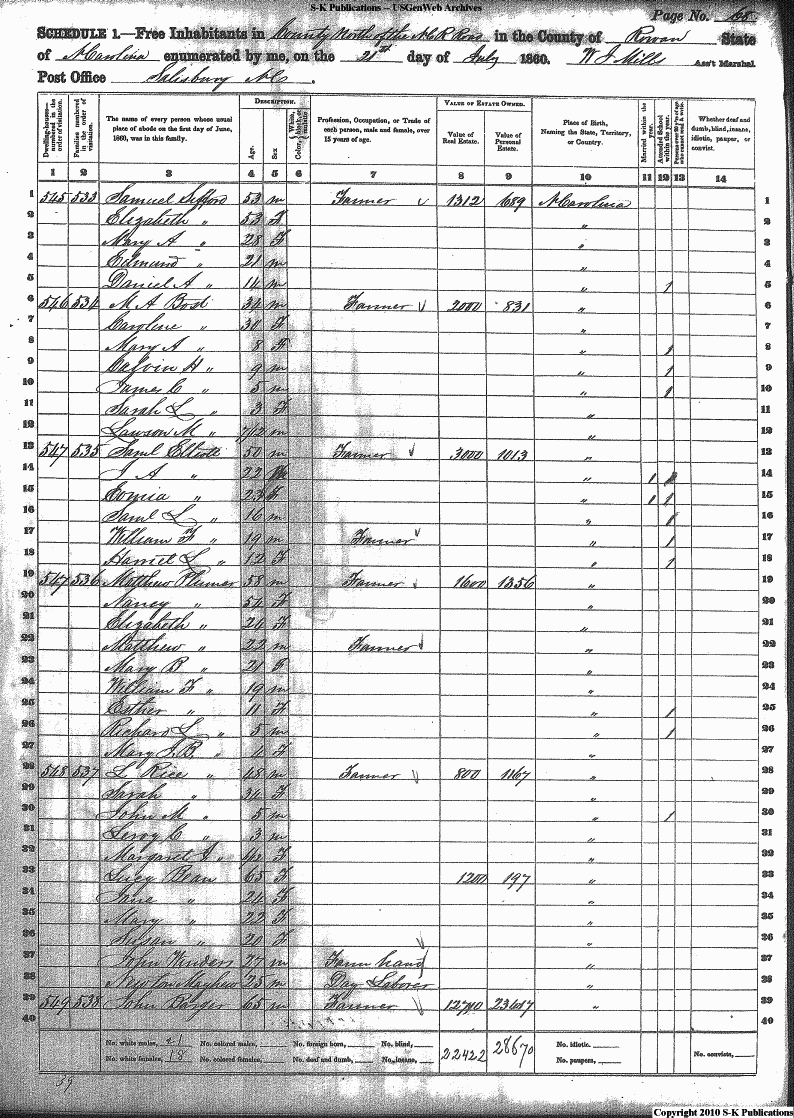 S-K Publications -- USGenWeb Archives
Page No. 65
SCHEDULE 1.—Free Inhabitants in County North of the N C R Road in the County of Rowan State
of N Carolina enumerated by me, on the 21st day of July 1860. W J Mills Ass't Marshal.
Post Office Salisbury N C.
Dwelling-houses—numbered in the order of visitation. Families numbered in the order of visitation. The name of every person whose usual place of abode on the first day of June, 1860, was in this family. DESCRIPTION. Age. Sex Color, White, black, or mulatto Profession, Occupation, or Trade of each person, male and female, over 15 years of age. VALUE OF ESTATE OWNED. Value of Real Estate. Value of Personal Estate. Place of Birth, Naming the State, Territory, or Country. Married within the year. Attended School within the year. Persons over 20 years of age who cannot read & write. Whether deaf and dumb, blind, insane, idiotic, pauper, or convict.
1 2 3 4 5 6 7 8 9 10 11 12 13 14
1 545 533 Samuel Sifford 53 m Farmer 1312 689 N Carolina 1
2 Elizabeth " 53 F " 2
3 Mary A " 28 F " 3
4 Edmund " 21 m " 4
5 Daniel A " 14 m " 1 5
6 546 534 M A Bost 34 m Farmer 2000 831 " 6
7 Caroline " 30 F " 7
8 Mary A " 8 F " 1 8
9 Calvin H " 9 m " 1 9
10 James C " 5 m " 1 10
11 Sarah L " 3 F " 11
12 Lawson M " 7/12 m " 12
13 547 535 Saml Elliott 50 m Farmer 3000 1013 " 13
14 J A " 22 " 1 14
15 " 23 F " 1 1 15
16 Saml L " 16 m " 1 16
17 William F " 19 m Farmer " 1 17
18 Harriet L " 12 F " 1 18
19 547 536 Matthew Plumer 58 m Farmer 1600 1356 " 19
20 Nancy " 54 F " 20
21 Elizabeth " 24 F " 21
22 Matthew " 22 m Farmer " 22
23 Mary B " 21 F " 23
24 William F " 19 m " 24
25 Esther " 11 F " 1 25
26 Richard L " 5 m " 1 26
27 Mary J B " 4 F " 27
28 548 537 L Rice " 48 m Farmer 800 1167 " 28
29 Sarah " 34 F " 29
30 John M " 5 m " 1 30
31 Leroy C " 3 m " 31
32 Margaret J " F " 32
33 Lucy Bean 65 F 1200 197 " 33
34 Jane " 24 F " 34
35 Mary " 22 F " 35
36 Susan " 20 F " 36
37 John Winders 27 m Farm hand " 37
38 Newton Mayhew 25 m Day Laborer " 38
39 549 538 John Barger 65 m Farmer 23617 " 39
40 40
No. white males, 21 No. colored males, No. foreign born, No. blind, 22422 28670 No. idiotic.
No. white females, 18 No. colored females, No. deaf and dumb, No. insane, No. paupers, No. convicts,
39
Copyright 2010 S-K Publications